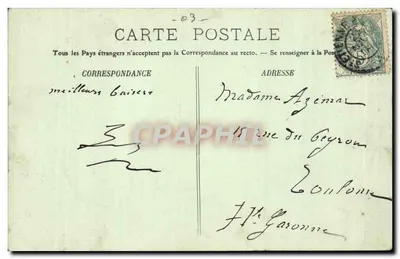 03
CARTE POSTALE
Tous les Pays étrangers n'acceptent pas la Correspondance au recto. — Se renseigner à la Pos
CORRESPONDANCE
ADRESSE
meilleurs baisers
Madame Azémar
15 rue du Peyrou
Toulouse
Hte Garonne
CPAPHIL